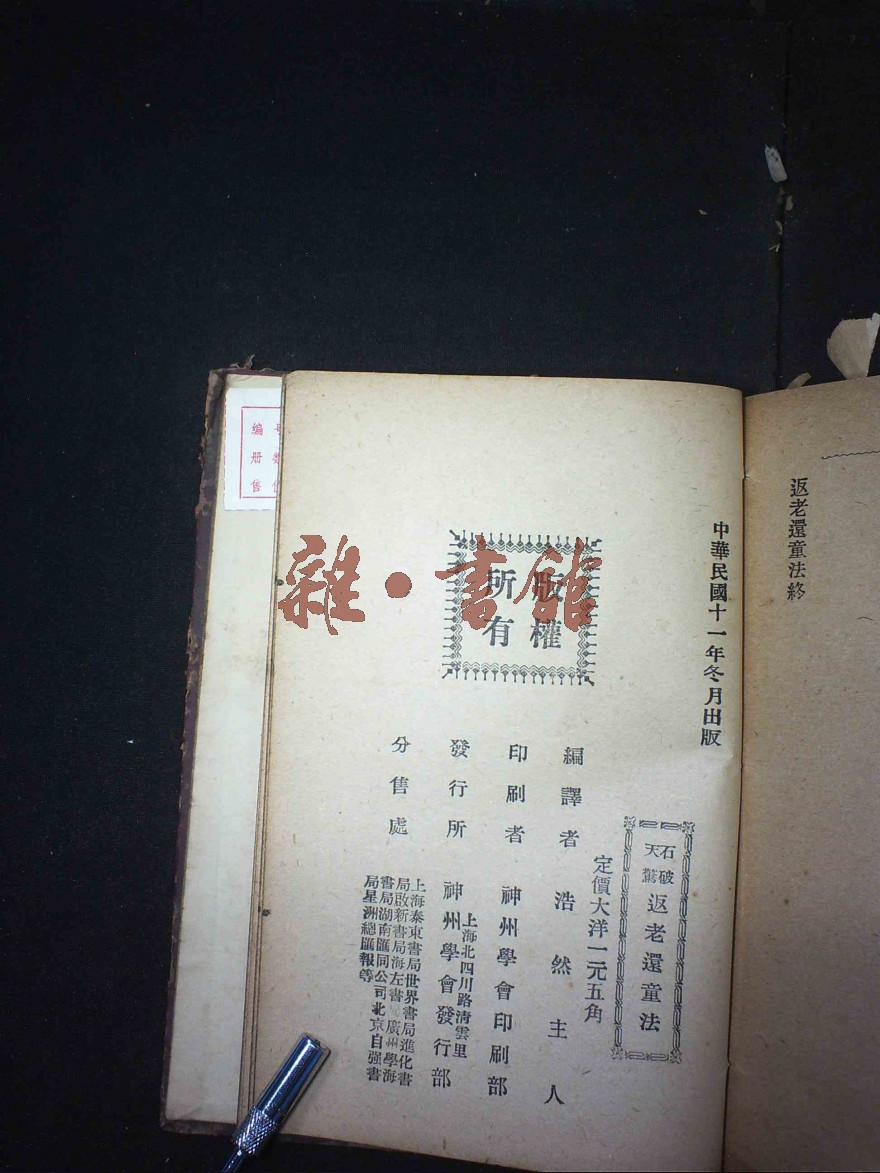 返老還童法終
中華民國十一年冬月出版
石破
天驚
返老還童法
定價大洋一元五角
編譯者 浩然主人
印刷者 神州學會印刷部
上海北四川路清雲里
發行所 神州學會發行部
分售處
上海泰東書局世界書局進化書
局啟新書局海左書局廣州學海
書局湖南匯同公司北京自強書
局星洲總匯報等
版權
所有
雜·書館
编
册
售